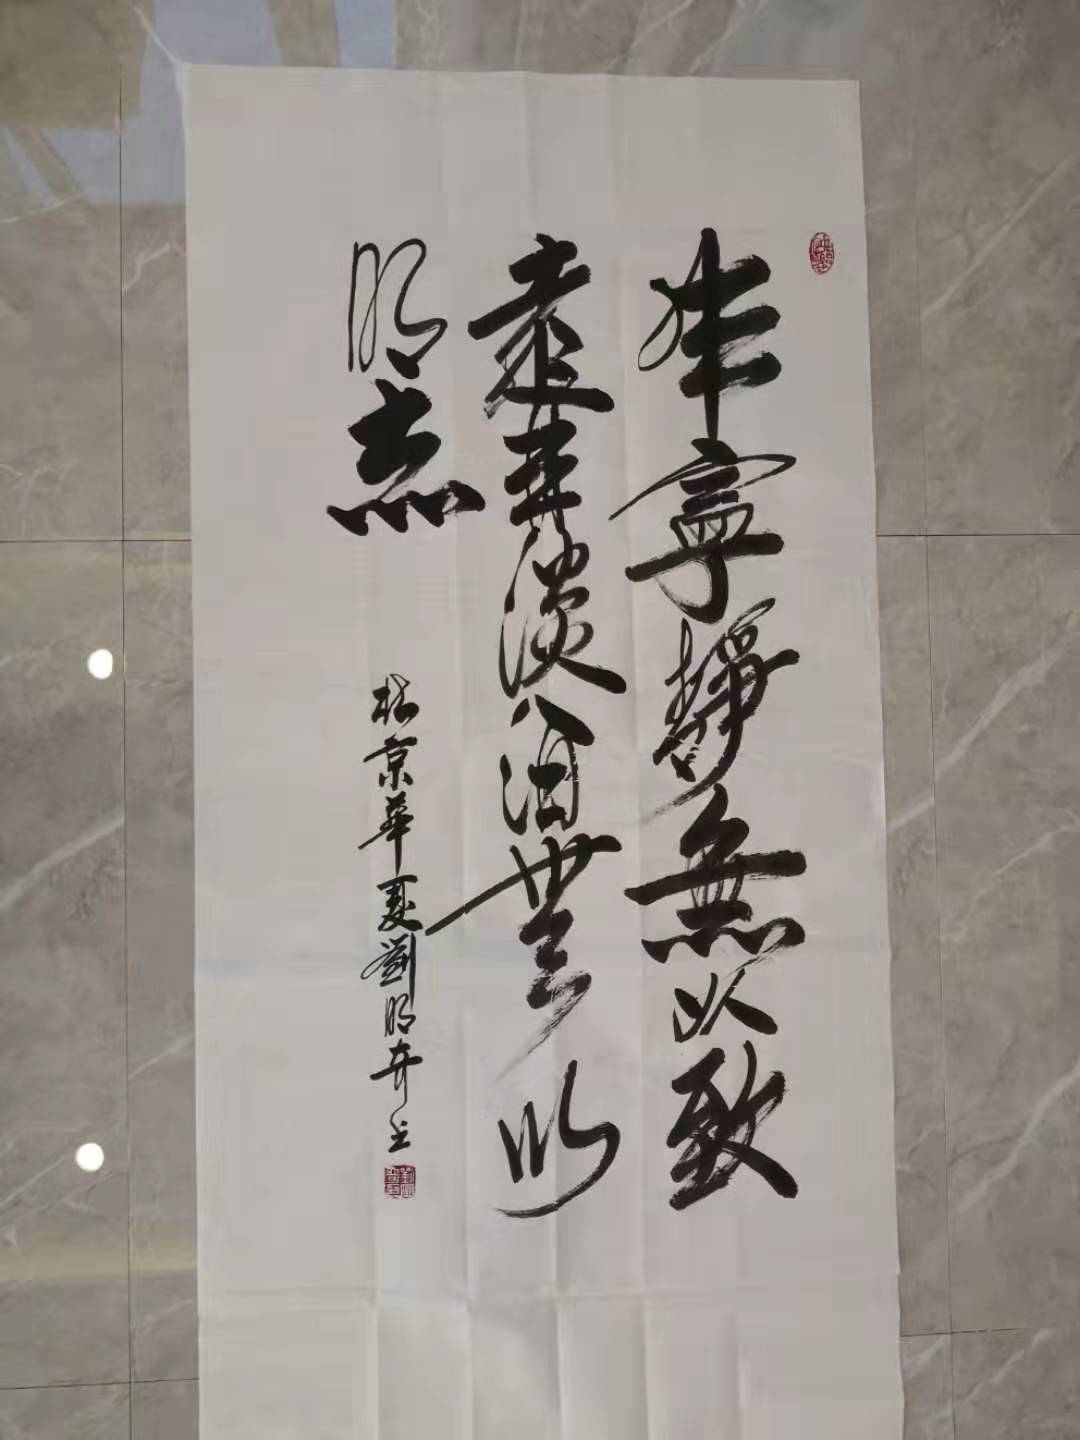 非寧靜無以致
遠非淡泊無以
明志
於京華夏劉明